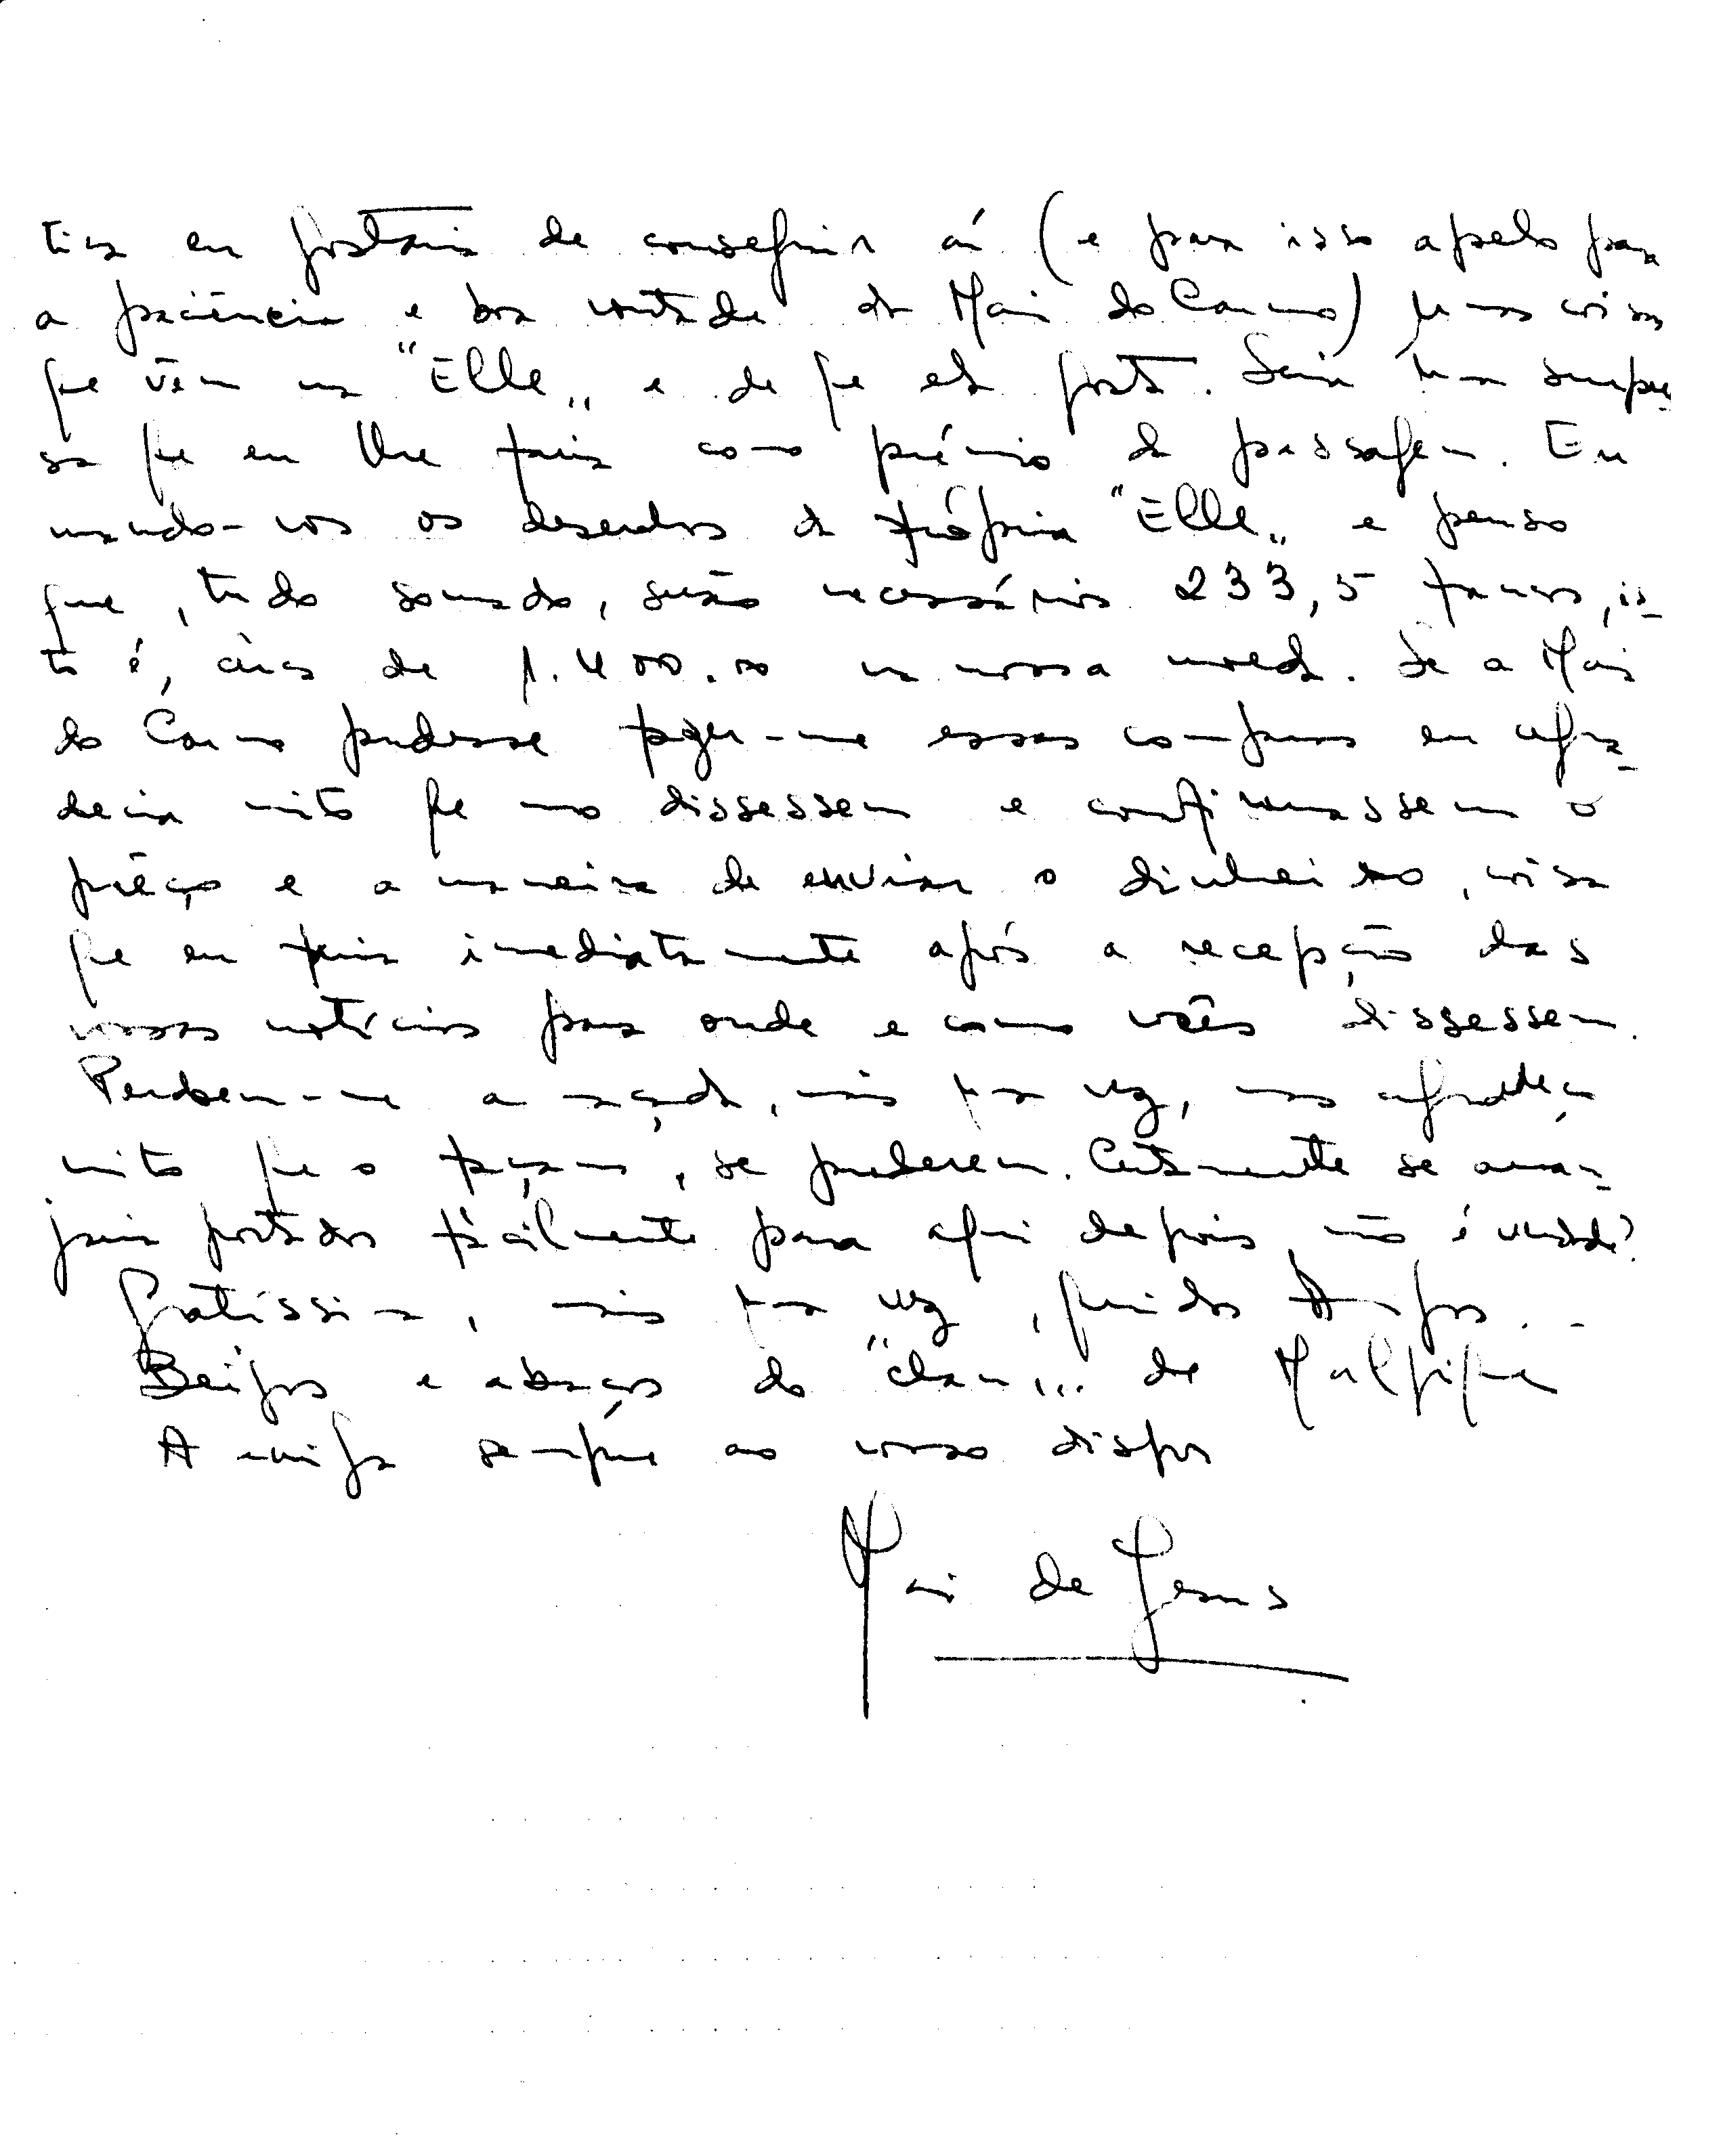 tiva eu gostaria de conseguir aí (e para isso apelo para
a paciência e boa vontade da Mari do Carmo) umas coisas
que vêm na "Elle„ e de que ela gosta. Seria uma surpre-
sa que eu lhe faria como prémio da passagem. Eu
mando-vos os desenhos da própria "Elle„ e penso
que, tudo somado, serão necessários 233,5 francos, is-
to é, cerca de 1.400.00 na nossa moeda. Se a Mari
do Carmo pudesse fazer-me essas compras eu agra-
decia muito que mo dissessem e confirmassem o
prêço e a maneira de enviar o dinheiro, coisa
que eu faria imediatamente após a recepção das
vossas notícias para onde e como vocês dissessem.
Perdoem-me a maçada, mais uma vez, mas agradeço
muito que o façam, se puderem. Certamente se arran-
jaria portador fàcilmente para aqui depois, não é verdade?
Gratíssima, mais uma vez, queridos Amigos...
Beijos e abraços do "clan„... de Malpique
A amiga sempre ao vosso dispor
Mari de Jesus